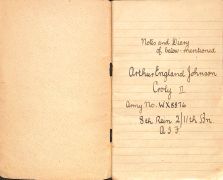 Notes and Diary
of below-mentioned
Arthur England Johnson
Army No. WX8876
8th Rein 2/11th Bn.
A I F